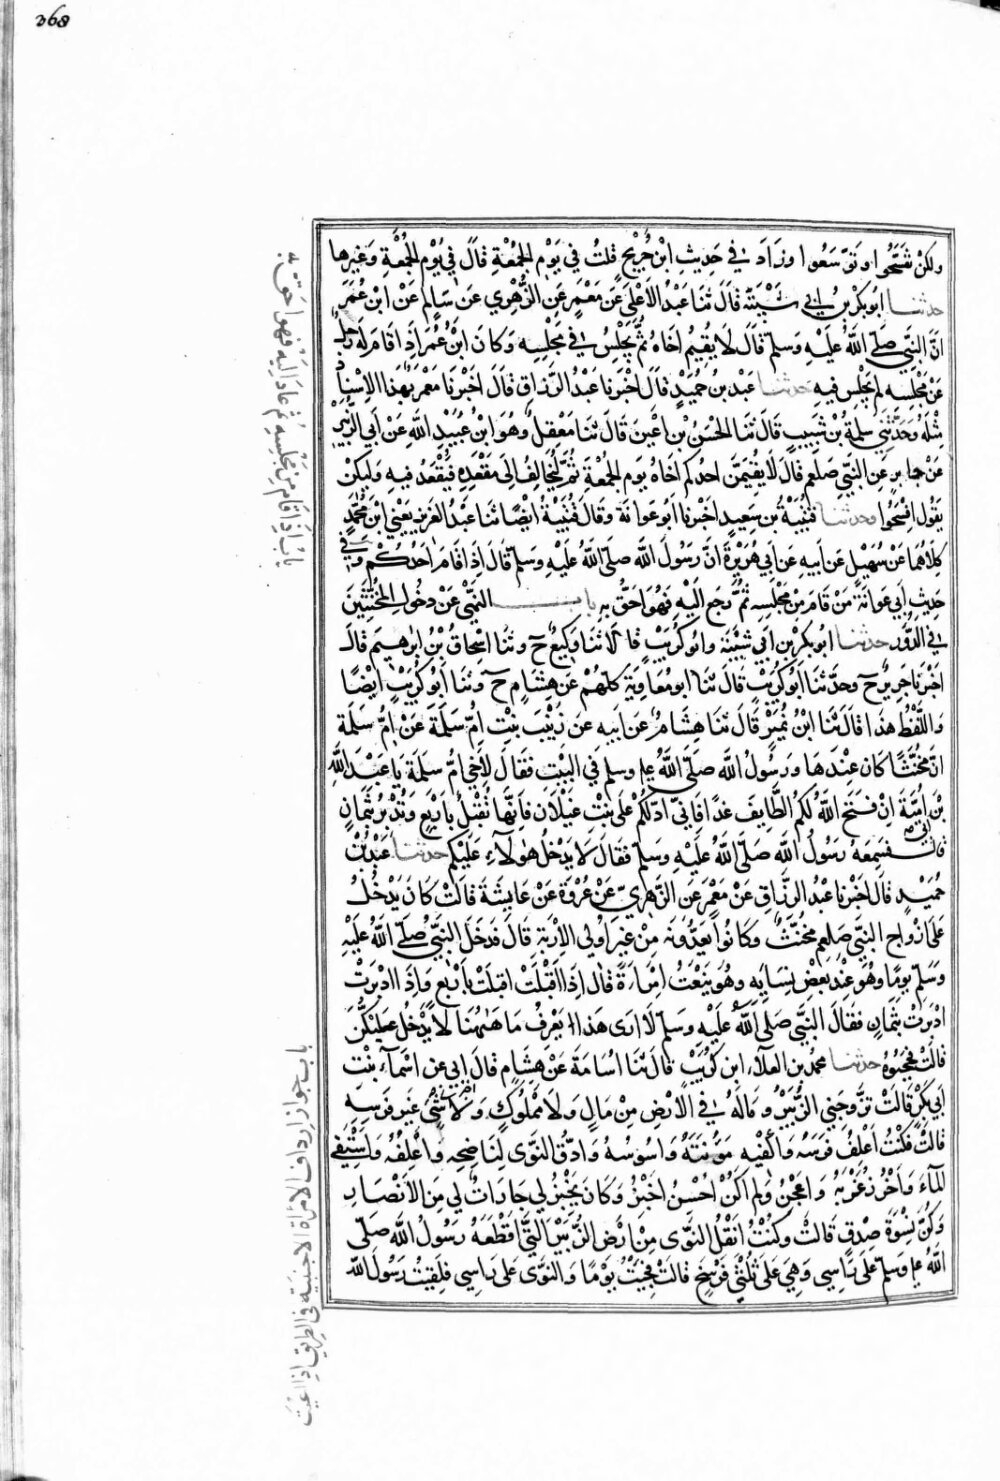 368
ولكن تفسحوا وتوسعوا وزاد في حديث ابن جريج قلت في يوم الجمعة قال في يوم الجمعة وغيرها
حدثنا ابو بكر بن ابي شيبة قال ثنا عبد الاعلى عن معمر عن الزهري عن سالم عن ابن عمر
ان النبي صلى الله عليه وسلم قال لا يقيم اخاه ثم يجلس في مجلسه وكان ابن عمر اذا قام له رجل
عن مجلسه لم يجلس فيه حدثنا عبد بن حميد قال اخبرنا عبد الرزاق قال اخبرنا معمر بهذا الاسناد
مثله وحدثني سلمة بن شبيب قال ثنا الحسن بن اعين قال ثنا معقل وهو ابن عبيد الله عن ابي الزبير
عن جابر عن النبي صلعم قال لا يقيمن احدكم اخاه يوم الجمعة ثم ليخالف الى مقعده فيقعد فيه ولكن
يقول افسحوا وحدثنا قتيبة بن سعيد اخبرنا ابو عوانة وقال قتيبة ايضا ثنا عبد العزيز يعني ابن محمد
كلاهما عن سهيل عن ابيه عن ابي هريرة ان رسول الله صلى الله عليه وسلم قال اذا قام احدكم وفي
حديث ابي عوانة من قام من مجلسه ثم رجع اليه فهو احق به باب النهي عن دخول المخنثين
في الدور حدثنا ابو بكر بن ابي شيبة وابو كريب قالا ثنا وكيع ح وثنا اسحاق بن ابراهيم قال
اخبرنا جرير ح وحدثنا ابو كريب قال ثنا ابو معاوية كلهم عن هشام ح وثنا ابو كريب ايضا
واللفظ هذا قال ثنا ابن نمير قال ثنا هشام عن ابيه عن زينب بنت ام سلمة عن ام سلمة
ان مخنثا كان عندها ورسول الله صلى الله علي وسلم في البيت فقال لاخي ام سلمة يا عبد الله
بن ابي امية ان فتح الله لكم الطايف غدا فاني ادلكم على بنت غيلان فانها تقبل باربع وتدبر بثمان
قالت فسمعه رسول الله صلى الله عليه وسلم فقال لا يدخل هولاء عليكم حدثنا عبد بن
حميد قال اخبرنا عبد الرزاق عن معمر عن الزهري عن عروة عن عايشة قالت كان يدخل
على ازواج النبي صلعم مخنث وكانوا يعدونه من غير اولي الاربة قال فدخل النبي صلى الله عليه
وسلم يوما وهو عند بعض نسايه وهو ينعت امراة قال اذا اقبلت اقبلت باربع واذا ادبرت
ادبرت بثمان فقال النبي صلى الله عليه وسلم لا ارى هذا يعرف ما هاهنا لا يدخل عليكن
قالت فحجبوه حدثنا محمد بن العلاء ابن كريب قال ثنا اسامة عن هشام قال ابي عن اسماء بنت
ابي بكر قالت تزوجني الزبير وماله في الارض من مال ولا مملوك ولا شئ غير فرسه
قالت فكنت اعلف فرسه واكفيه مؤنته واسوسه وادق النوى لناضحه واعلفه واستقي
الماء واخرز غربه واعجن ولم اكن احسن اخبز وكان يخبز لي جارات لي من الانصار
وكن نسوة صدق قالت وكنت انقل النوى من ارض الزبير التي اقطعه رسول الله صلى
الله علي وسلم على راسي وهي على ثلثي فرسخ قالت فجيت يوما والنوى على راسي فلقيت رسول الله
باب اذا قام من مجلسه ثم عاد اليه فهو احق به
باب جواز ارداف الامراة الاجنبية في الطريق اذا اعيت